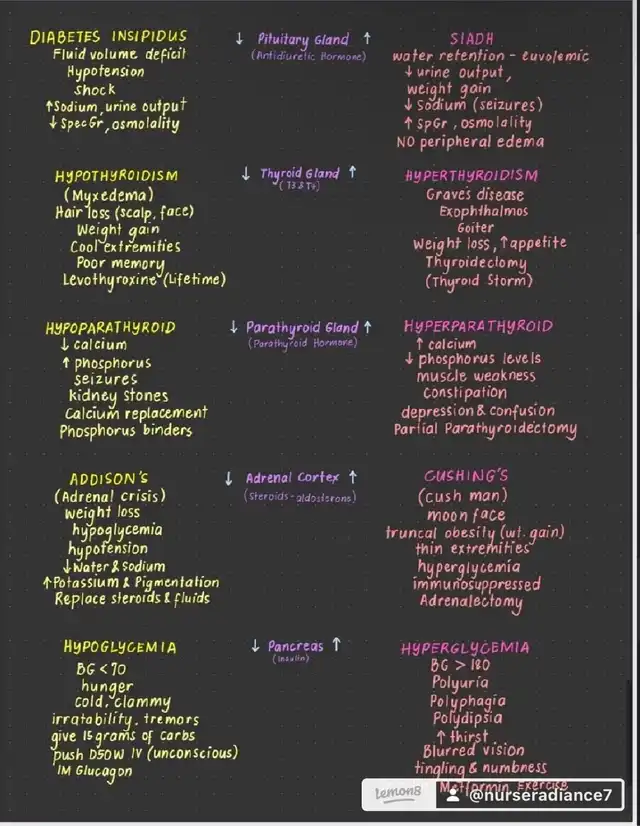 DIABETES INSIPIDUS
Fluid volume deficit
Hypotension
shock
↑Sodium, urine output
↓SpecGr, osmolality
↓ Pituitary Gland ↑
(Antidiuretic Hormone)
SIADH
water retention - euvolemic
↓ urine output,
weight gain
↓ Sodium (seizures)
↑ SpGr, osmolality
NO peripheral edema
HYPOTHYROIDISM
(Myxedema)
Hair loss (scalp, face)
Weight gain
Cool extremities
Poor memory
Levothyroxine (Lifetime)
↓ Thyroid Gland ↑
(T3 & T4)
HYPERTHYROIDISM
Graves disease
Exophthalmos
Goiter
Weight loss, ↑appetite
Thyroidectomy
(Thyroid Storm)
HYPOPARATHYROID
↓ calcium
↑ phosphorus
seizures
kidney stones
Calcium replacement
Phosphorus binders
↓ Parathyroid Gland ↑
(Parathyroid Hormone)
HYPERPARATHYROID
↑ calcium
↓ phosphorus levels
muscle weakness
Constipation
depression & confusion
Partial Parathyroidectomy
ADDISON'S
(Adrenal crisis)
weight loss
hypoglycemia
hypotension
↓Water & Sodium
↑Potassium & Pigmentation
Replace steroids & fluids
↓ Adrenal Cortex ↑
(Steroids-aldosterone)
CUSHING'S
(cush man)
moon face
truncal obesity (wt. gain)
thin extremities
hyperglycemia
immunosuppressed
Adrenalectomy
HYPOGLYCEMIA
BG < 70
hunger
cold, clammy
irratability, tremors
give 15 grams of carbs
push D50W IV (unconscious)
IM Glucagon
↓ Pancreas ↑
(Insulin)
HYPERGLYCEMIA
BG > 180
Polyuria
Polyphagia
Polydipsia
↑ thirst
Blurred vision
tingling & numbness
Metformin, Exercise
lemon8
@nurseradiance7